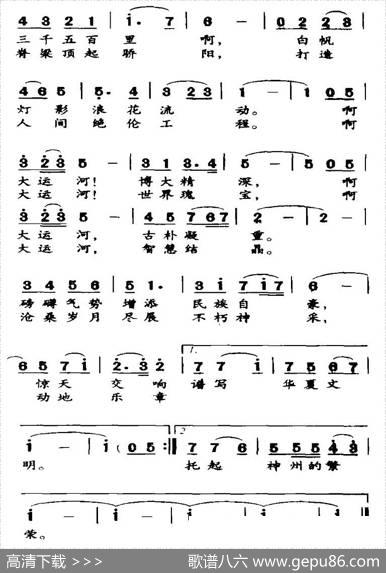 4 3 2 1 | i. 7 | 6 - | 0 2 2 8 |
三千五百 里 啊, 白帆
脊梁顶起 骄 阳, 打造
4 6 5 | 5. 4 | 3 2 3 | 1 - | 1 0 5 |
灯影 浪花 流 动。 啊
人间 绝伦 工 程。 啊
3 2 3 5 | 5 - | 3 1 3. 4 | 5 - | 5 0 5 |
大运河! 博大精 深, 啊
大运河! 世界瑰 宝, 啊
3 2 3 5 | 5 - | 4 5 7 6 7 | 2 - | 2 - |
大运河, 古朴凝 重。
大运河, 智慧结 晶。
3 4 5 6 | 5 1. | 3 i 7 i 7 | 6 - |
磅礴气势 增添 民族自 豪,
沧桑岁月 尽展 不朽神 采,
6 5 7 i | 2. 3 2 | 7 7 i | 7 5 6 7 |
1.
惊天 交 响 谱写 华夏文
动地 乐 章
i - | i ( 0 5 :| 7 7 6 | 5 5 5 4 3 |
2.
明。 托起 神州的繁
i - | i - | i - | i - |
荣。
高清下载 >>>
歌谱八六 www.gepu86.com